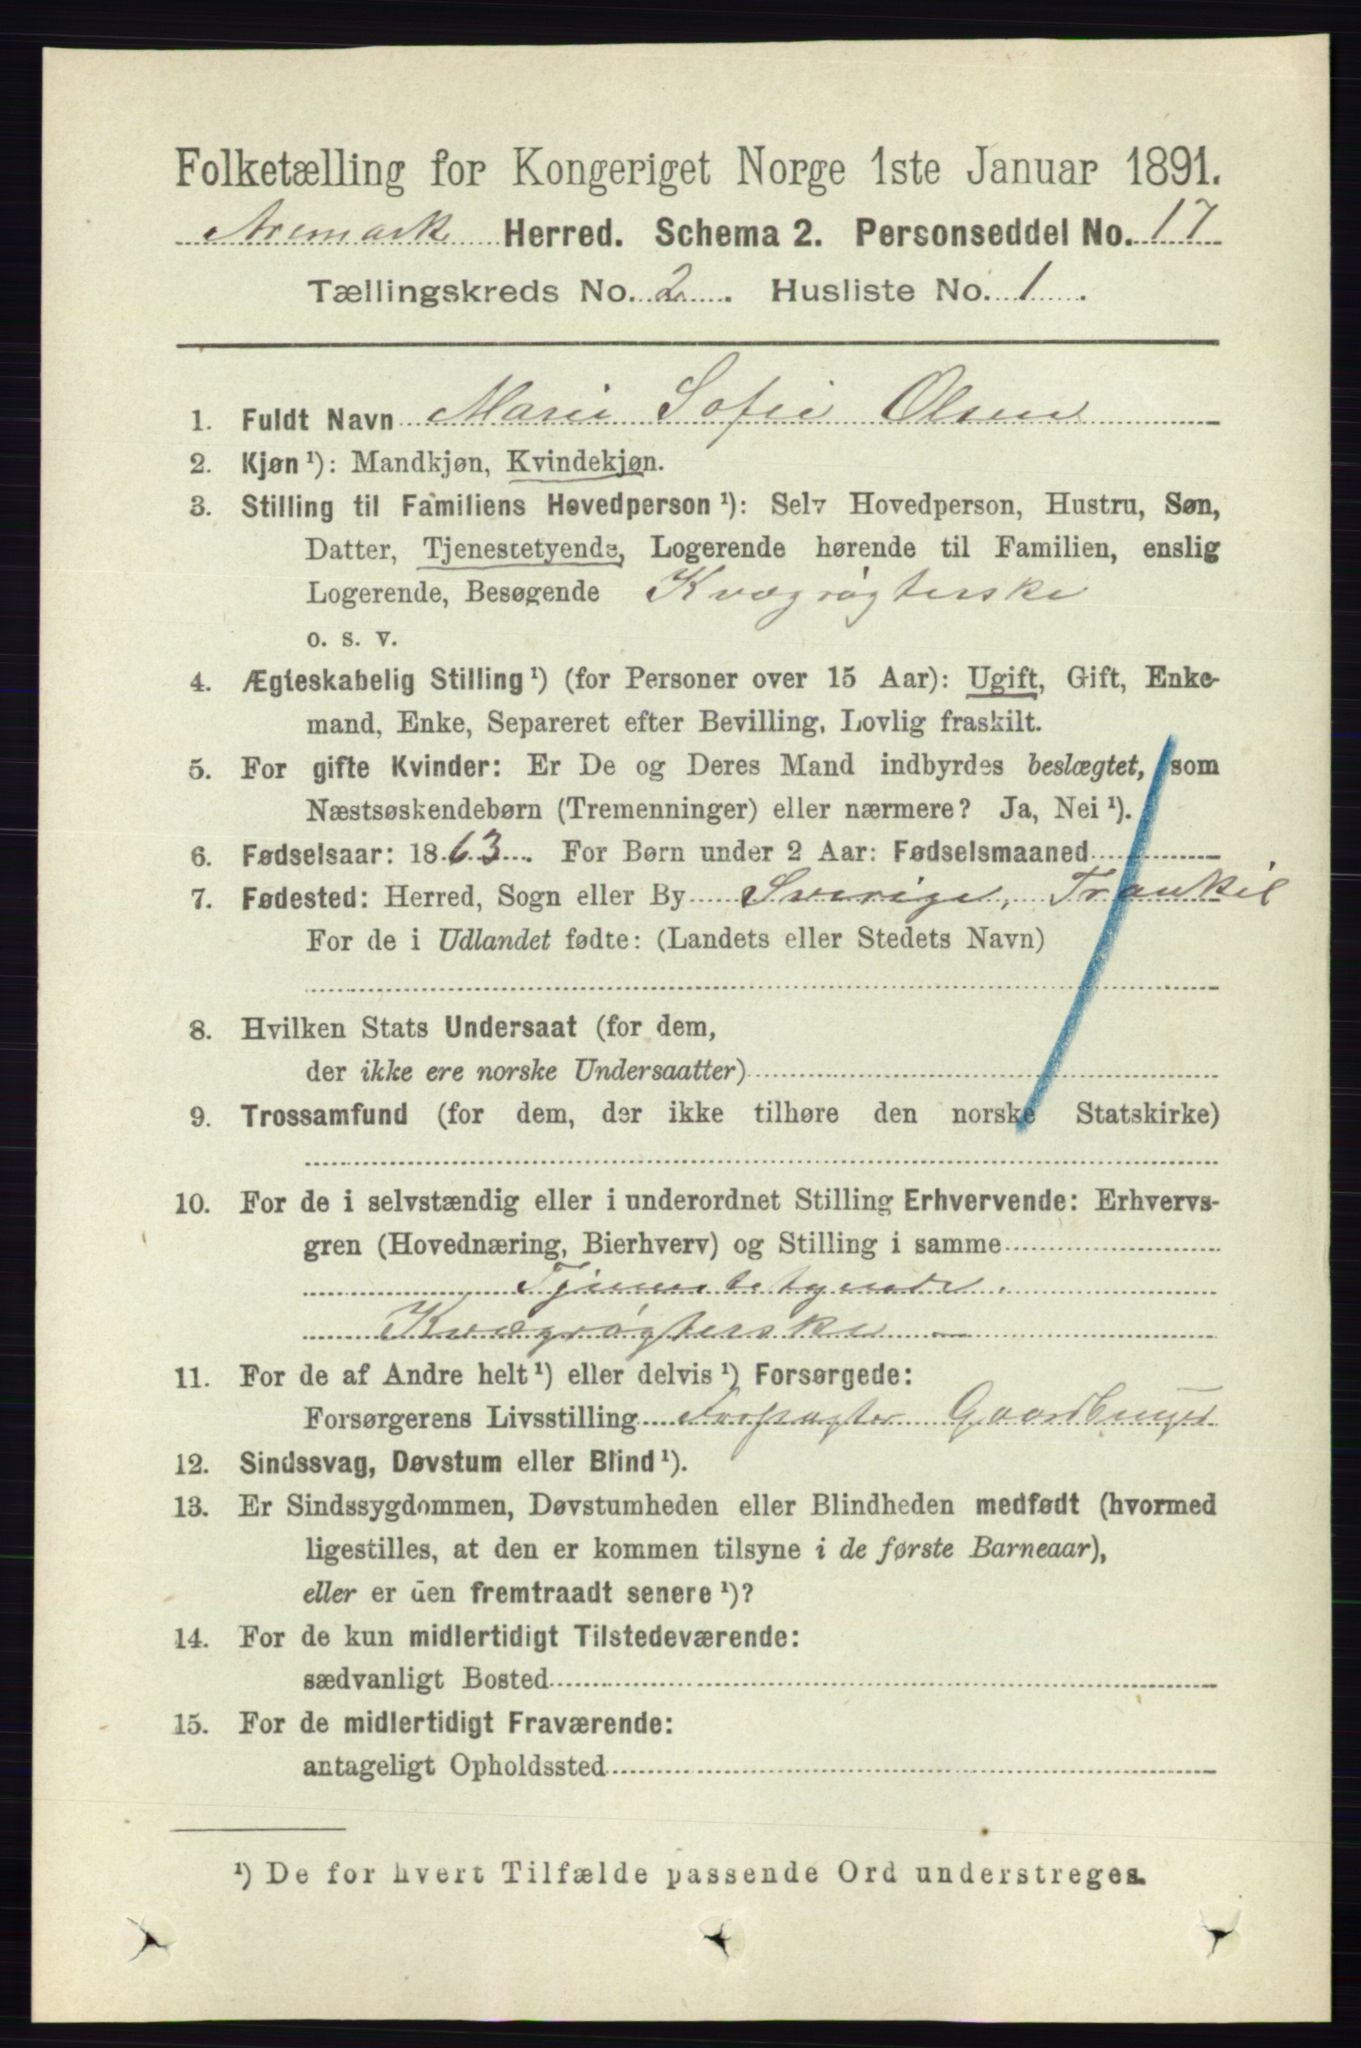 Folketælling for Kongeriget Norge 1ste Januar 1891.
Aremark Herred. Schema 2. Personseddel No. 17
Tællingskreds No. 2. Husliste No. 1.
1. Fuldt Navn Marie Sofie Olsen
2. Kjøn ¹): Mandkjøn, Kvindekjøn.
3. Stilling til Familiens Hovedperson ¹): Selv Hovedperson, Hustru, Søn,
Datter, Tjenestetyende, Logerende hørende til Familien, enslig
Logerende, Besøgende Kvægrøgterske
o. s. v.
4. Ægteskabelig Stilling ¹) (for Personer over 15 Aar): Ugift, Gift, Enke-
mand, Enke, Separeret efter Bevilling, Lovlig fraskilt.
5. For gifte Kvinder: Er De og Deres Mand indbyrdes beslægtet, som
Næstsøskendebørn (Tremenninger) eller nærmere? Ja, Nei ¹).
6. Fødselsaar: 1863. For Børn under 2 Aar: Fødselsmaaned
7. Fødested: Herred, Sogn eller By Sverige, Trankil
For de i Udlandet fødte: (Landets eller Stedets Navn)
8. Hvilken Stats Undersaat (for dem,
der ikke ere norske Undersaatter)
9. Trossamfund (for dem, der ikke tilhøre den norske Statskirke)
10. For de i selvstændig eller i underordnet Stilling Erhvervende: Erhvervs-
gren (Hovednæring, Bierhverv) og Stilling i samme
Tjenestetyende.
Kvægrøgterske
11. For de af Andre helt ¹) eller delvis ¹) Forsørgede:
Forsørgerens Livsstilling Gaardbruger
12. Sindssvag, Døvstum eller Blind ¹).
13. Er Sindssygdommen, Døvstumheden eller Blindheden medfødt (hvormed
ligestilles, at den er kommen tilsyne i de første Barneaar),
eller er den fremtraadt senere ¹)?
14. For de kun midlertidigt Tilstedeværende:
sædvanligt Bosted
15. For de midlertidigt Fraværende:
antageligt Opholdssted
¹) De for hvert Tilfælde passende Ord understreges.